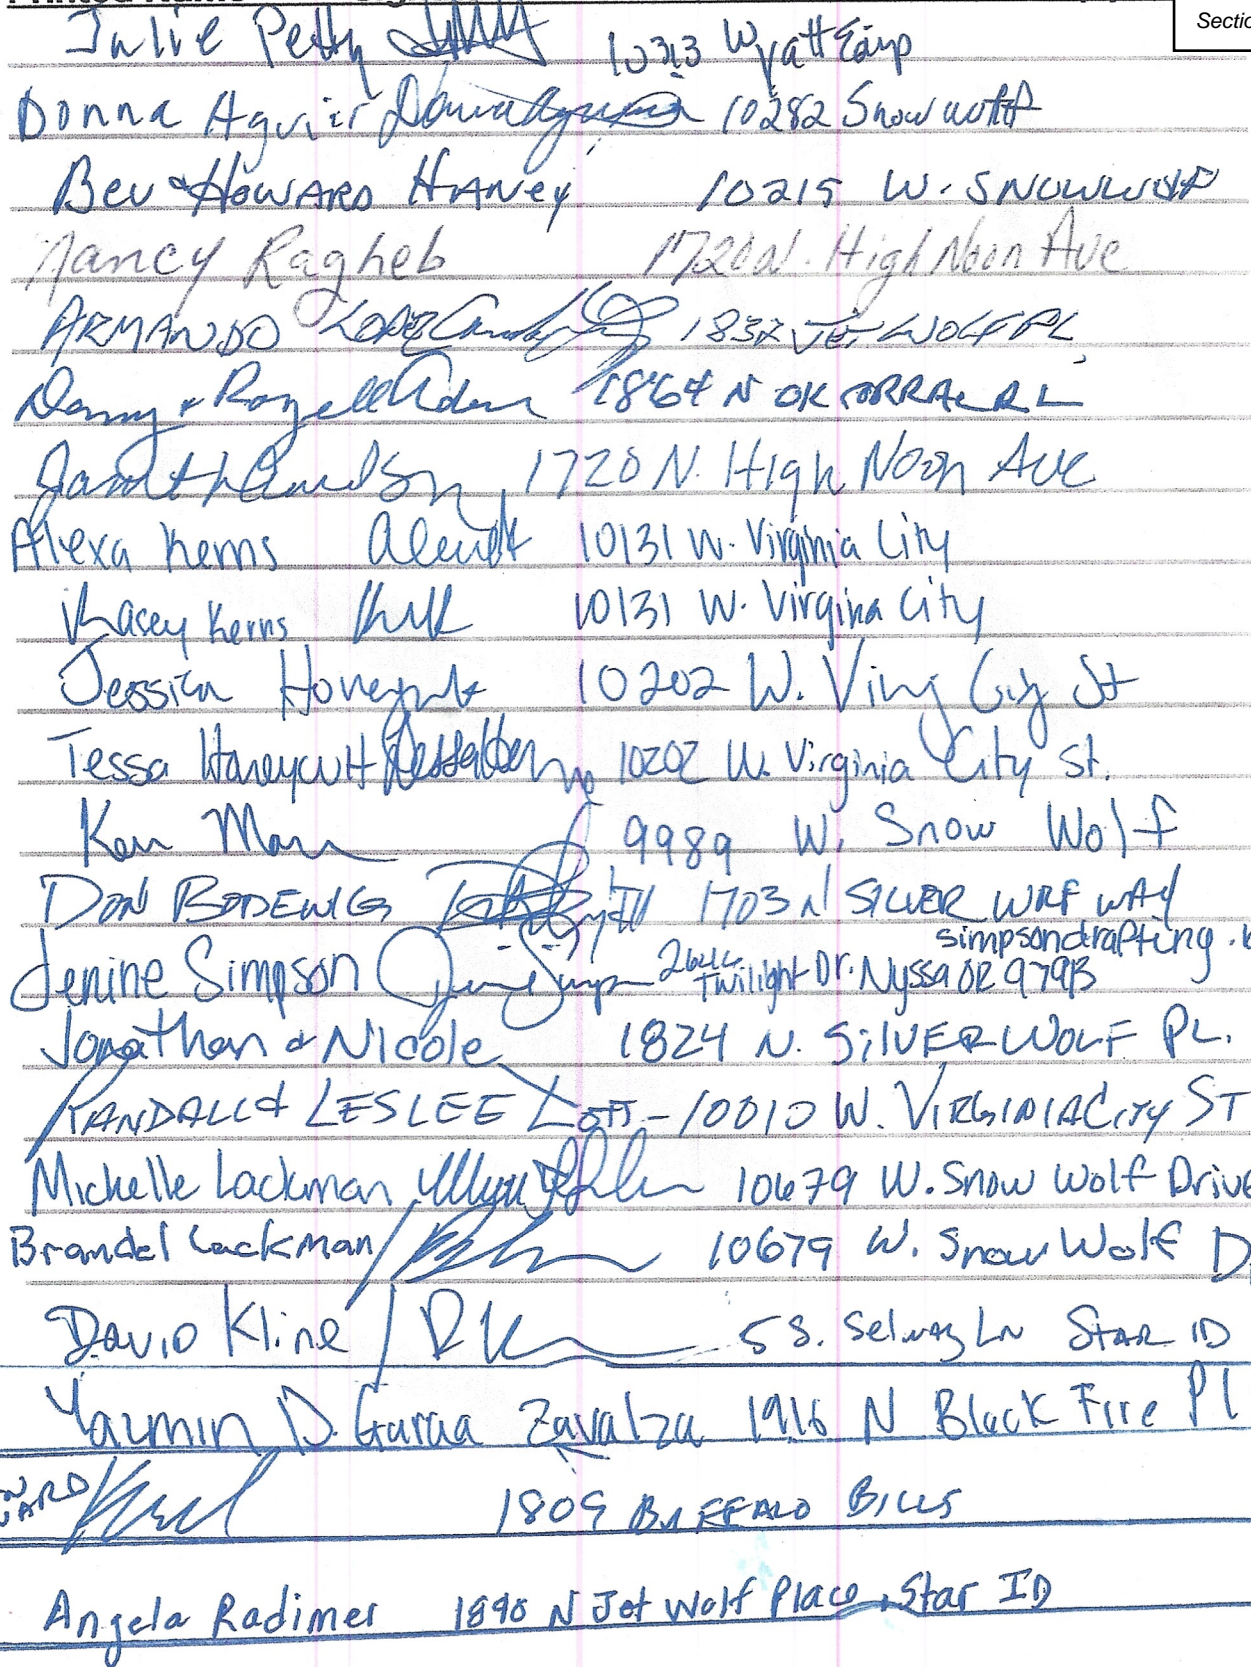 Printed Name
Sectio
Julie Petty 10313 Wyatt Earp
Donna Aguiar 10282 Snow wolf
Bev & HOWARD HANEY 10215 W. SNOWWOLF
Nancy Ragheb 1720 N. High Noon Ave
ARMANDO LOPEZ 1832 JET WOLF PL
1864 N OK CORRAL PL
1720 N. High Noon Ave
Alexa Kerns 10131 W. Virginia City
Kasey Kerns 10131 W. Virgina City
Jessica 10202 W. St
Tessa Honeycutt 10202 W. Virginia City St.
Ken 9989 W. Snow Wolf
DON BODEWIG 1703 N SILVER WOLF WAY
simpsondrafting.
Jenine Simpson Twilight Dr. Nyssa OR 97913
Jonathan & Nicole 1824 N. SILVER WOLF PL.
RANDALL & LESLEE LOTT - 10010 W. VIRGINIA CITY ST
Michelle Lackman 10679 W. Snow Wolf Drive
Brandel Lackman 10679 W. Snow Wolf D
David Kline 5 S. Selway LN STAR ID
Yazmin D. Garcia Zavalza 1916 N Black Fire Pl
1809 BUFFALO BILLS
Angela Radimer 1898 N Jet Wolf Place, Star ID